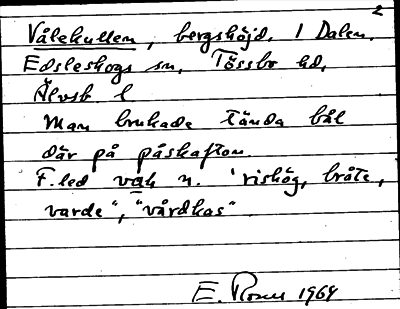 2
Vålekullen, bergshöjd. I Dalen.
Edsleskogs sn, Tössbo hd,
Älvsb. l
Man brukade tända bål
där på påskafton.
F.led vak n. 'rishög, bråte,
varde", "vårdkas"
E. Rosen 1964